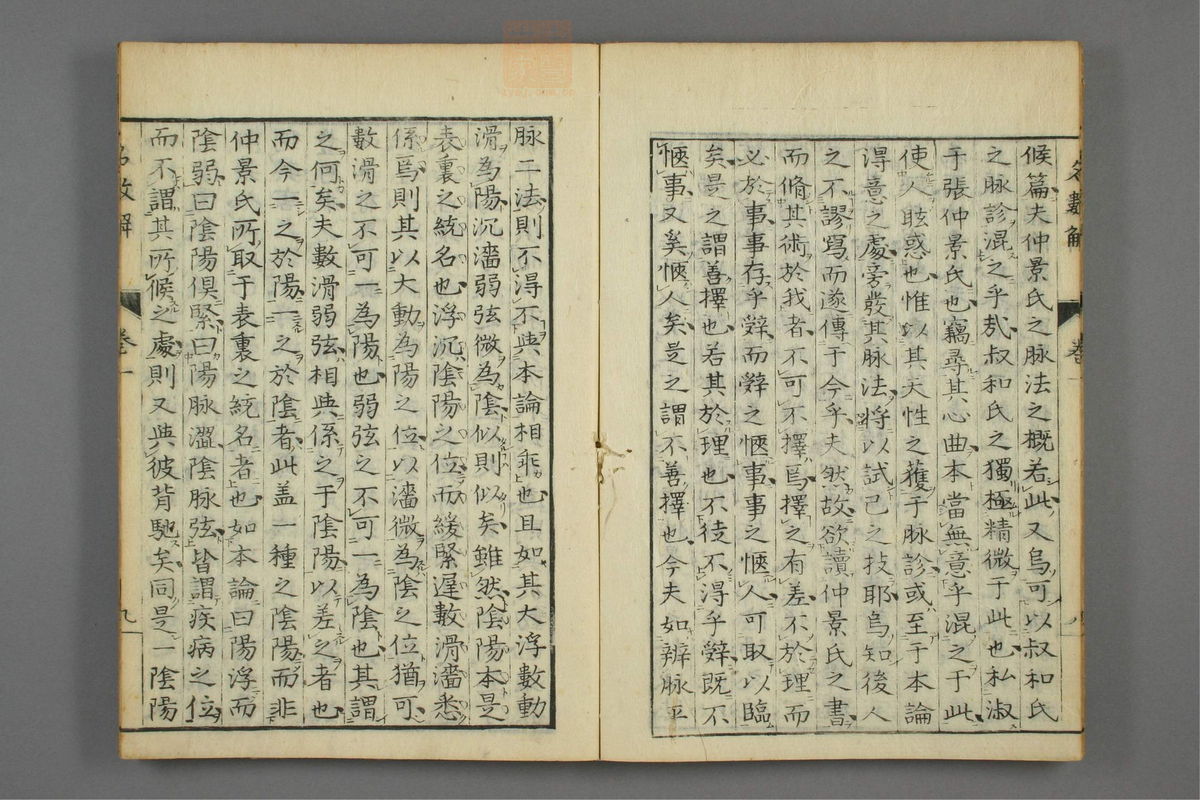 候篇夫仲景氏之脉法之概若此又烏可以叔和氏
之脉診混之乎哉叔和氏之獨極精微于此也私淑
于張仲景氏也竊尋其心曲本當無意乎混之于此
使人眩惑也惟以其天性之蔓于脉診或至于本論
得意之處旁發其脉法將以試己之技耶烏知後人
之不謬寫而遂傳于今乎夫然故欲讀仲景氏之書
而脩其術於我者不可不擇焉擇之有差不於理而
必於事事存乎辭而辭之愜事事之愜人可取以臨
矣是之謂善擇也若其於理也不徒不得乎辭既不
愜事又奚愜人矣是之謂不善擇也今夫如辨脉平
脉二法則不得不與本論相乖也且如其大浮數動
滑為陽沉濇弱弦微為陰似則似矣雖然陰陽本是
表裏之統名也浮沉陰陽之位而緩緊遲數滑濇悉
係焉則其以大動為陽之位以濇微為陰之位猶可
數滑之不可一為陽也弱弦之不可一為陰也其謂
之何矣夫數滑弱弦相與係之于陰陽以差之者也
而今一之於陽一之於陰者此盖一種之陰陽而非
仲景氏所取于表裏之統名者也如本論曰陽浮而
陰弱曰陰陽俱緊曰陽脉澀陰脉弦皆謂疾病之位
而不謂其所候之處則又與彼背馳矣同是一陰陽
名數解
卷一
九